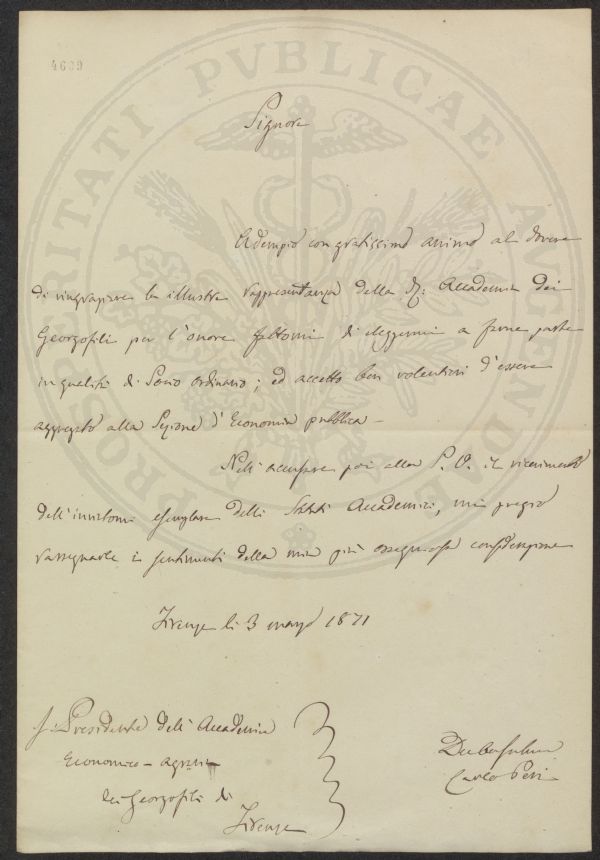 4609
PROSPERITATI PVBLICAE AVGENDAE
Signore
Adempio con gratissimo animo al dovere
di ringraziare la illustre rappresentanza della R. Accademia dei
Georgofili per l'onore fattomi di eleggermi a farne parte
in qualità di Socio ordinario; ed accetto ben volentieri d'essere
aggregato alla Sezione d'Economia pubblica –
Nell'accusare poi alla S. V. il ricevimento
dell'inviatomi esemplare delli Statuti Accademici, mi pregio
rassegnarle i sentimenti della mia più ossequiosa considerazione
Firenze li 3 marzo 1871
Presidente dell'Accademia
Economico – agraria
dei Georgofili di
Firenze
Carlo Peri